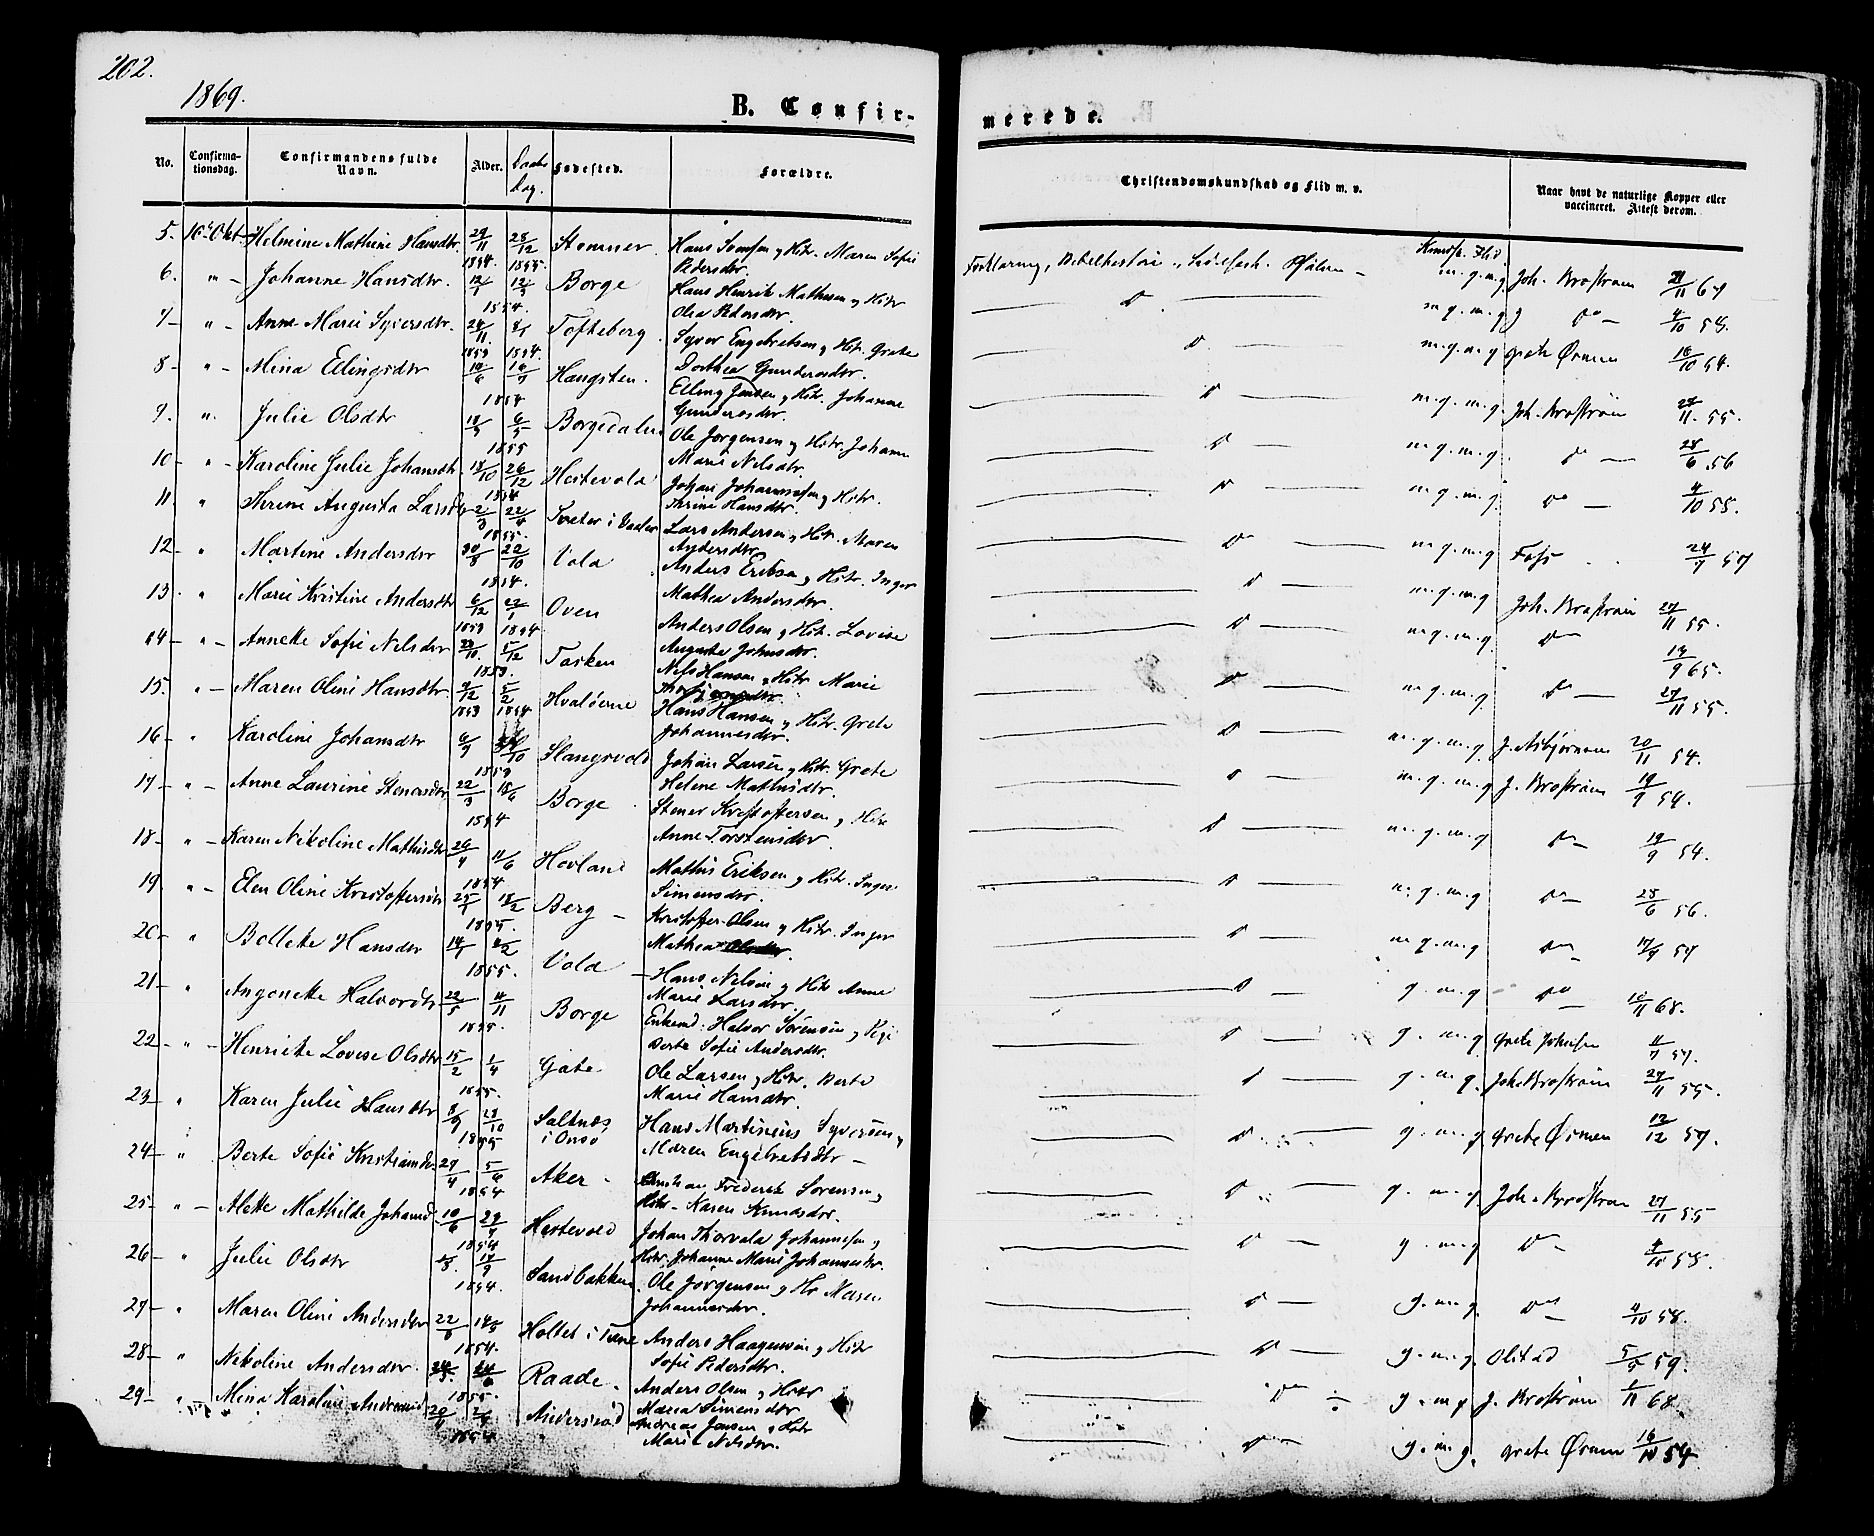 202.
1869.
B. Confir-
merede.
No. Confirma-tionsdag. Confirmandens fulde Navn. Alder. Daabs dag. Fødested. Forældre. Christendomskundskab og Flid m. v. Naar havt de naturlige Kopper eller vaccineret. Attest derom.
Kundsk. Flid.
5. Helmine Mathine Hansdtr. 29/11 1854. 28/12 Hans Tomsen og Hstr. Maren Sofie Pedersdtr. Forklaring, Bibelhistorie, Psalmer – m.g.m.g. Joh. Brostrøm 21/11 67
6. " – Johanne Hansdtr. 12/1 12/3 Borge Hans Henrik Mathesen og Hstr. Olea Pedersdtr. do m.g.m.g. do – 4/10 58.
1854.
7 – " – Anne Marie Syversdtr. 24/11 8/1 Tofteberg Syver Engebretsen og Hstr. Grete Dorthea Gundersdtr. m.g.m.g. Grete Ørmen 18/10 54.
1853 1854.
8 – " – Mina Ellingsdtr 10/6 16/7 Haugsten. Elling Jensen og Hstr. Johanne Gundersdtr. m.g.m.g. Joh. Brostrøm 27/11. 55.
1854
9. ". Julie Olsdtr Borgedalen Ole Jørgensen og Hstr. Johanne Marie Nilsdtr. m.g.m.g. do – 28/6 56
1855
10 – " – Karoline Julie Johansdtr. 18/10 26/12 Hestevold Johan Johannessen og Hstr. Thrine Hansdtr. m.g.m.g. do – 4/10 58.
1854
11. " Thrine Augusta Larsdtr 2/3 22/4 Lars Andersen og Hstr. Maren Andersdtr. m.g.m.g 24/7 57
1855.
12 – " Martine Andersdtr 30/8 22/10 Vold Anders Eriksen og Hstr. Inger Mathea Andersdtr. m.g.m.g Joh. Brostrøm 27/11 55.
1854.
13. " Marie Kristine Andersdtr 6/12 22/1 Oven Anders Olsen og Hstr. Lovise Auguste Johnsdtr. m.g.m.g. do 19/9 65.
1853 1854
14 – " – Annette Sofie Nilsdtr 23/10 5/12 Torken Nils Hansen og Hstr. Marie m.g.m.g do – 27/11 55.
1853.
15. " – Maren Oline Hansdtr 4/12 5/2 Hvaløerne Hans Hansen og Hstr. Grete Johannesdtr. m.g.m.g. J. Asbjørnsen 20/11 54.
1853 1854
16 – " Karoline Johansdtr 6/9 Slangsvold Johan Larsen og Hstr. Grete Helene Mathisdtr. m.g.m.g J. Brostrøm 19/9 54.
1853
17 – " – Anne Laurine Stenersdtr 22/3 18/6 Borge Stener Kristoffersen og Hstr Anne Torstensdtr. m.g.m.g do – 19/9 54.
1854
18 – " – Karen Nikoline Mathisdtr 29/4 11/6 Hovland Mathis Eriksen og Hstr. Inger Simensdtr. m.g.m.g do – 28/6 56.
1854
19 " – Elen Oline Kristoffersdtr 25/1 18/2 Berg – Kristoffer Olsen og Hstr. Inger Mathea Olsdtr. m.g.m.g do 17/9 57
1855.
20 – " Bollete Hansdtr 14/1 Vold Hans Nilsen og Hstr Anne Marie Larsdtr. g.m.g do 68.
1855.
21 – " Angonette Halvordtr 22/5 4/11 Borge Enkemd. Halvor Sørensen og Pige Berte Sofie Andersdtr. g. m.g Grete Johnsen 11/7 57.
1855.
22 – " – Henriette Lovise Olsdtr 15/2 1/4 Gate Ole Larsen og Hstr. Berte Marie Hansdtr. g.m.g. Joh. Brostrøm 27/11 55.
1855.
23 – " Karen Julie Hansdtr 8/9 28/10 Saltnæs i Onsø Hans Martinius Syversen og Maren Engebretsdtr – g.m.g Grete Ørmen 12/12 57.
1855
24 – " Berte Sofie Kristiansdtr 27/4 5/6 Aker – Christian Frederik Sørensen og Hstr – Karen Knudsdtr. g. m.g Joh. Brostrøm 27/11 55
1854
25 – " – Alette Mathilde Johansd 10/6 29/7 Hestevold Johan Thorvald Johannessen og Hstr. Johanne Marie Johannesdtr. g.m.g do – 4/10 58.
1854
26 – " Julie Olsdtr 17/9 Sandbakken Ole Jørgensen og Hr Maren Johannesdtr. g.m.g do 4/10 58.
1854.
27 – " Maren Oline Andersdtr 22/8 Holtet i Tune Anders Haagensen og Hstr Sofie Pedersdtr. g.m.g. Olstad 5/9 59.
1854.
28 – " Nikoline Andersdtr. Raade – Anders Olsen og Hstr Maria Simensdtr g.m.g J. Brostrøm 1/11 68.
1855.
29 – " Mina Karoline Andreasd Andersrød Andreas Jensen og Hstr Marie Nilsdtr. g.m.g. Grete Ørmen 18/10 54
1854